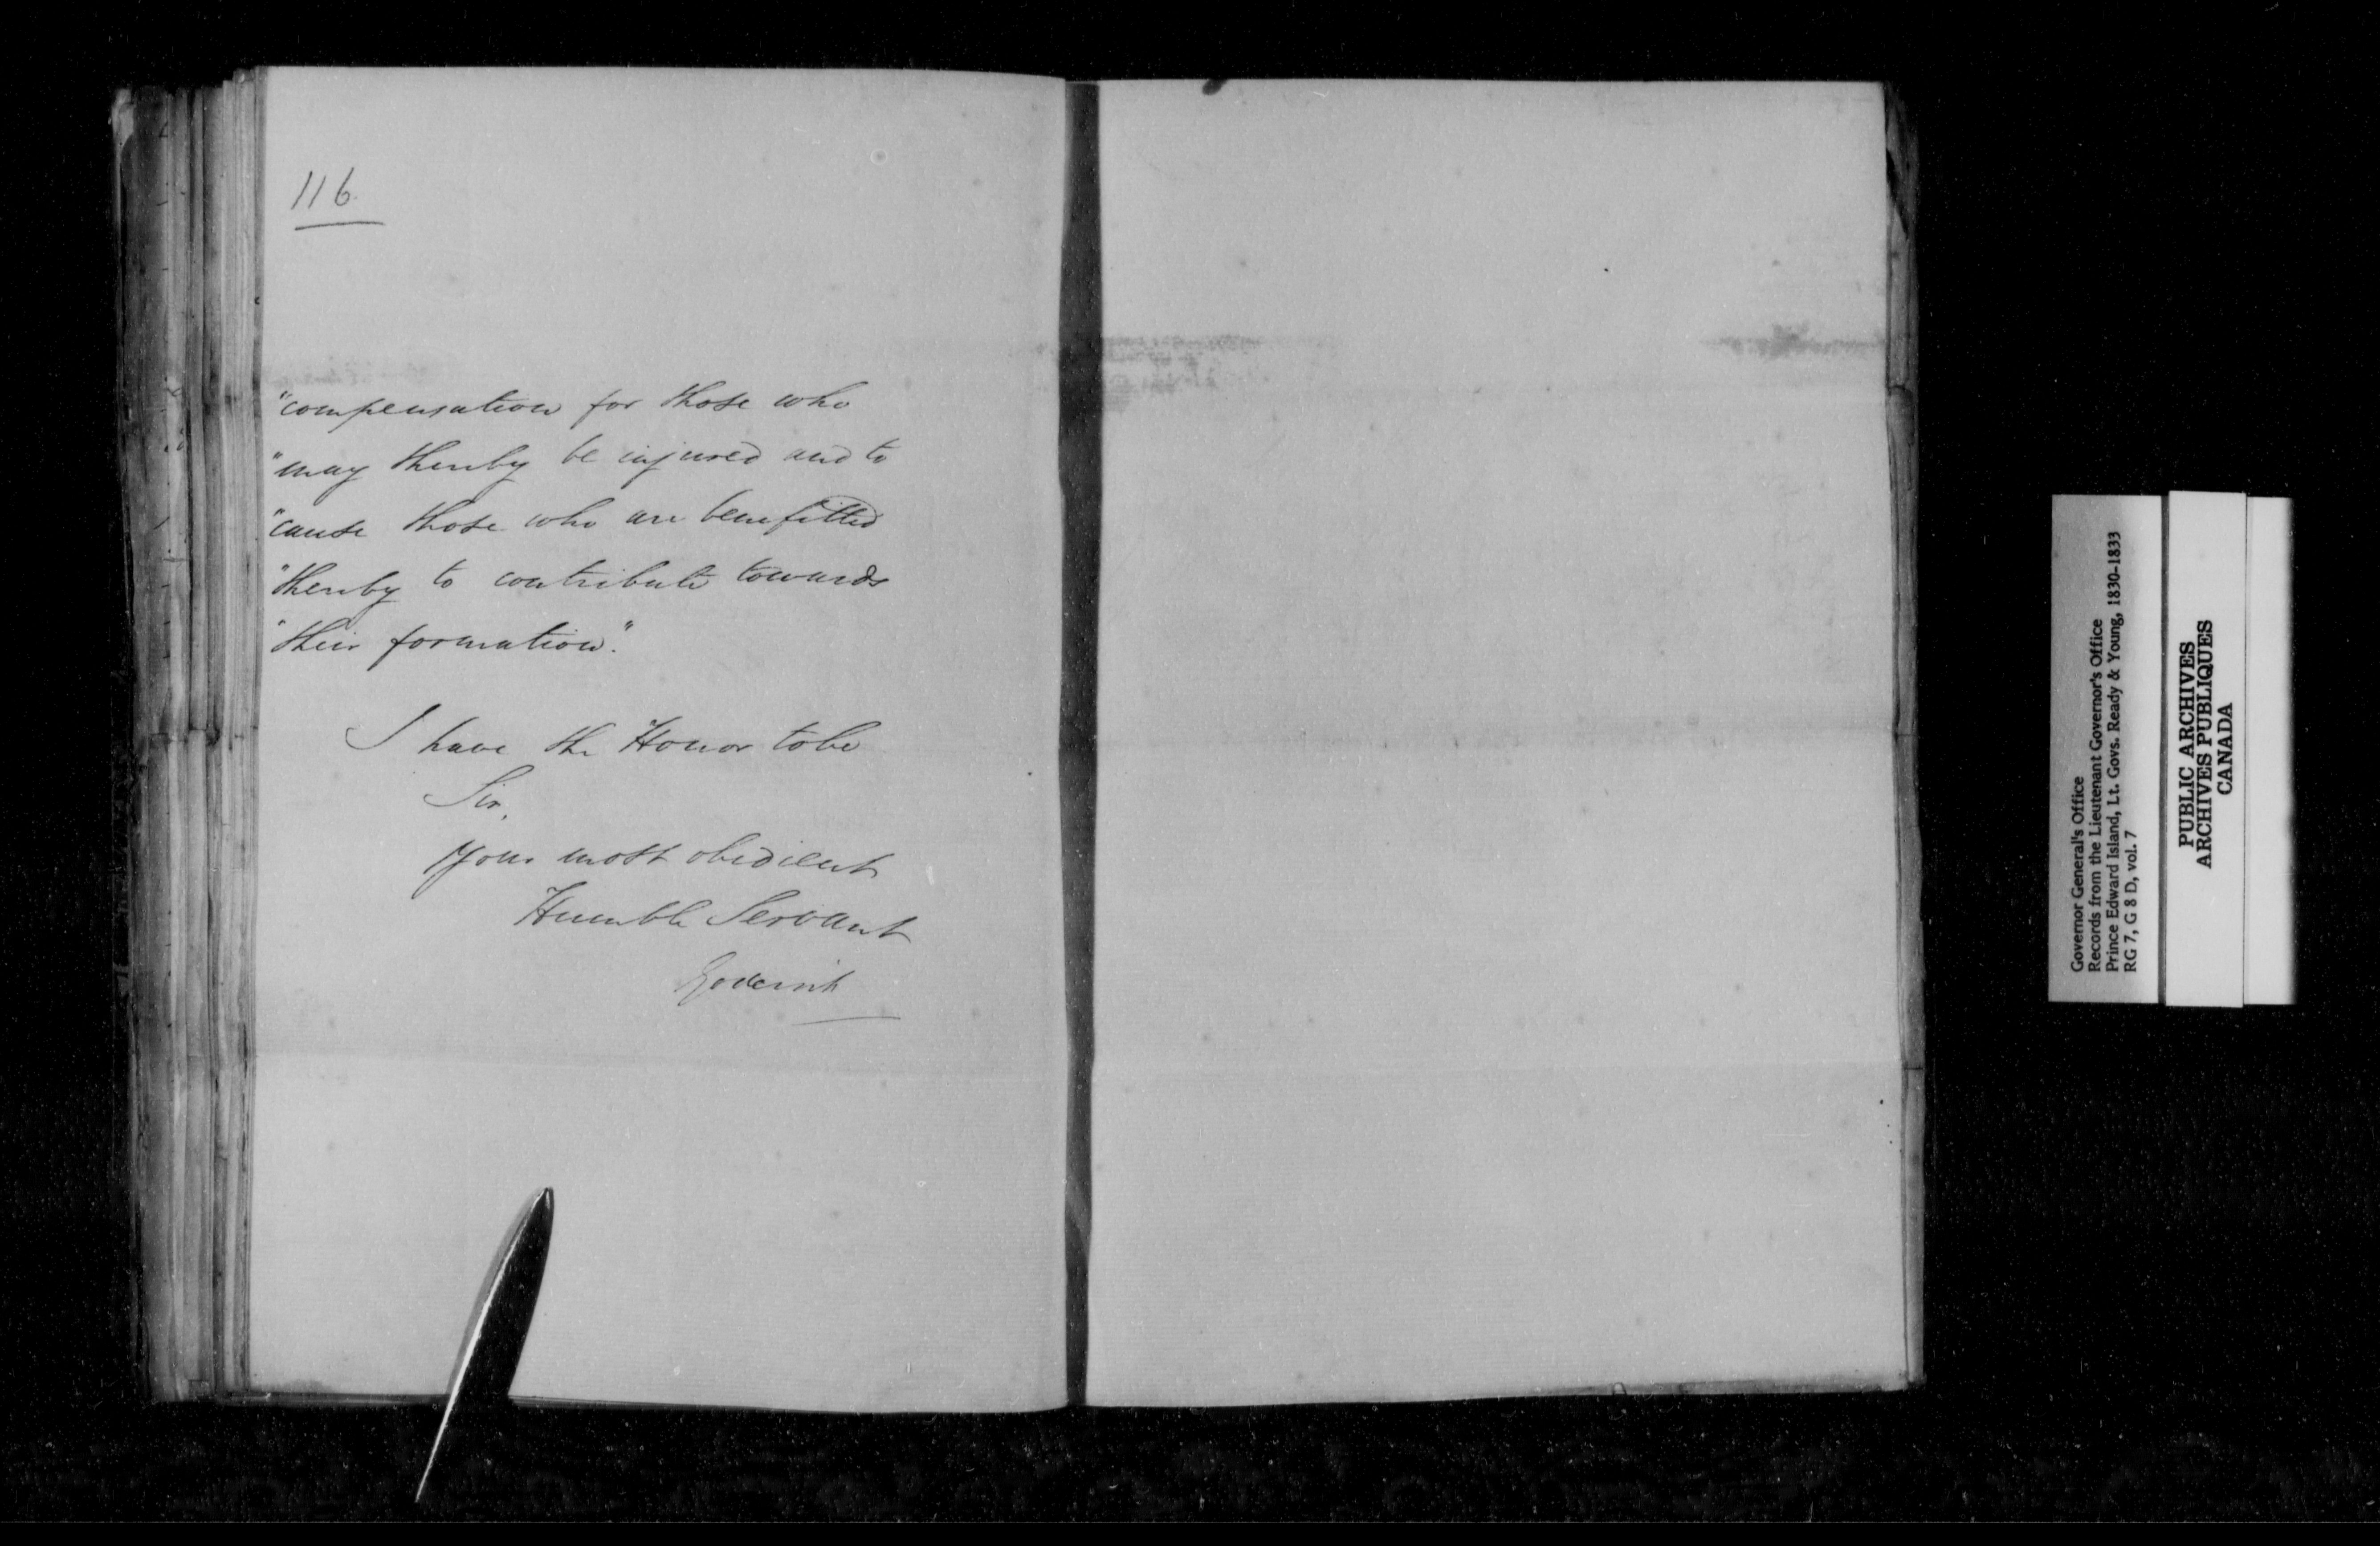 116.
"compensation for those who
"may thereby be injured and to
"cause those who are benefitted
"thereby to contribute towards
"their formation".
I have the Honor to be
Sir,
Your most obedient
Humble Servant
Goderich
Governor General's Office
Records from the Lieutenant Governor's Office
Prince Edward Island, Lt. Govs. Ready & Young, 1830-1833
RG 7, G 8 D, vol. 7
PUBLIC ARCHIVES
ARCHIVES PUBLIQUES
CANADA